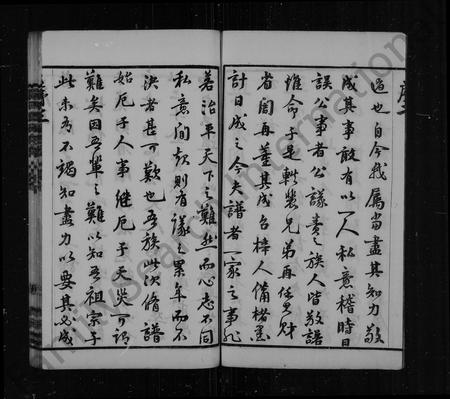 過也自今我屬當盡其知力敬
成其事敢有以一人私意稽時日
誤公事者公議責之族人皆敬諾
惟命于是軼裳兄弟再任出財
者閤再董其成召梓人備楮墨
計日成之今夫譜者一家之事非
若治平天下之難然而心志不同
私意間於則有議之累年而不
決者甚可歎也吾族此次脩譜
始厄于人事繼厄于天災可謂
難矣因吾輩之難以知吾祖宗子
此未為不竭知盡力以要其必成